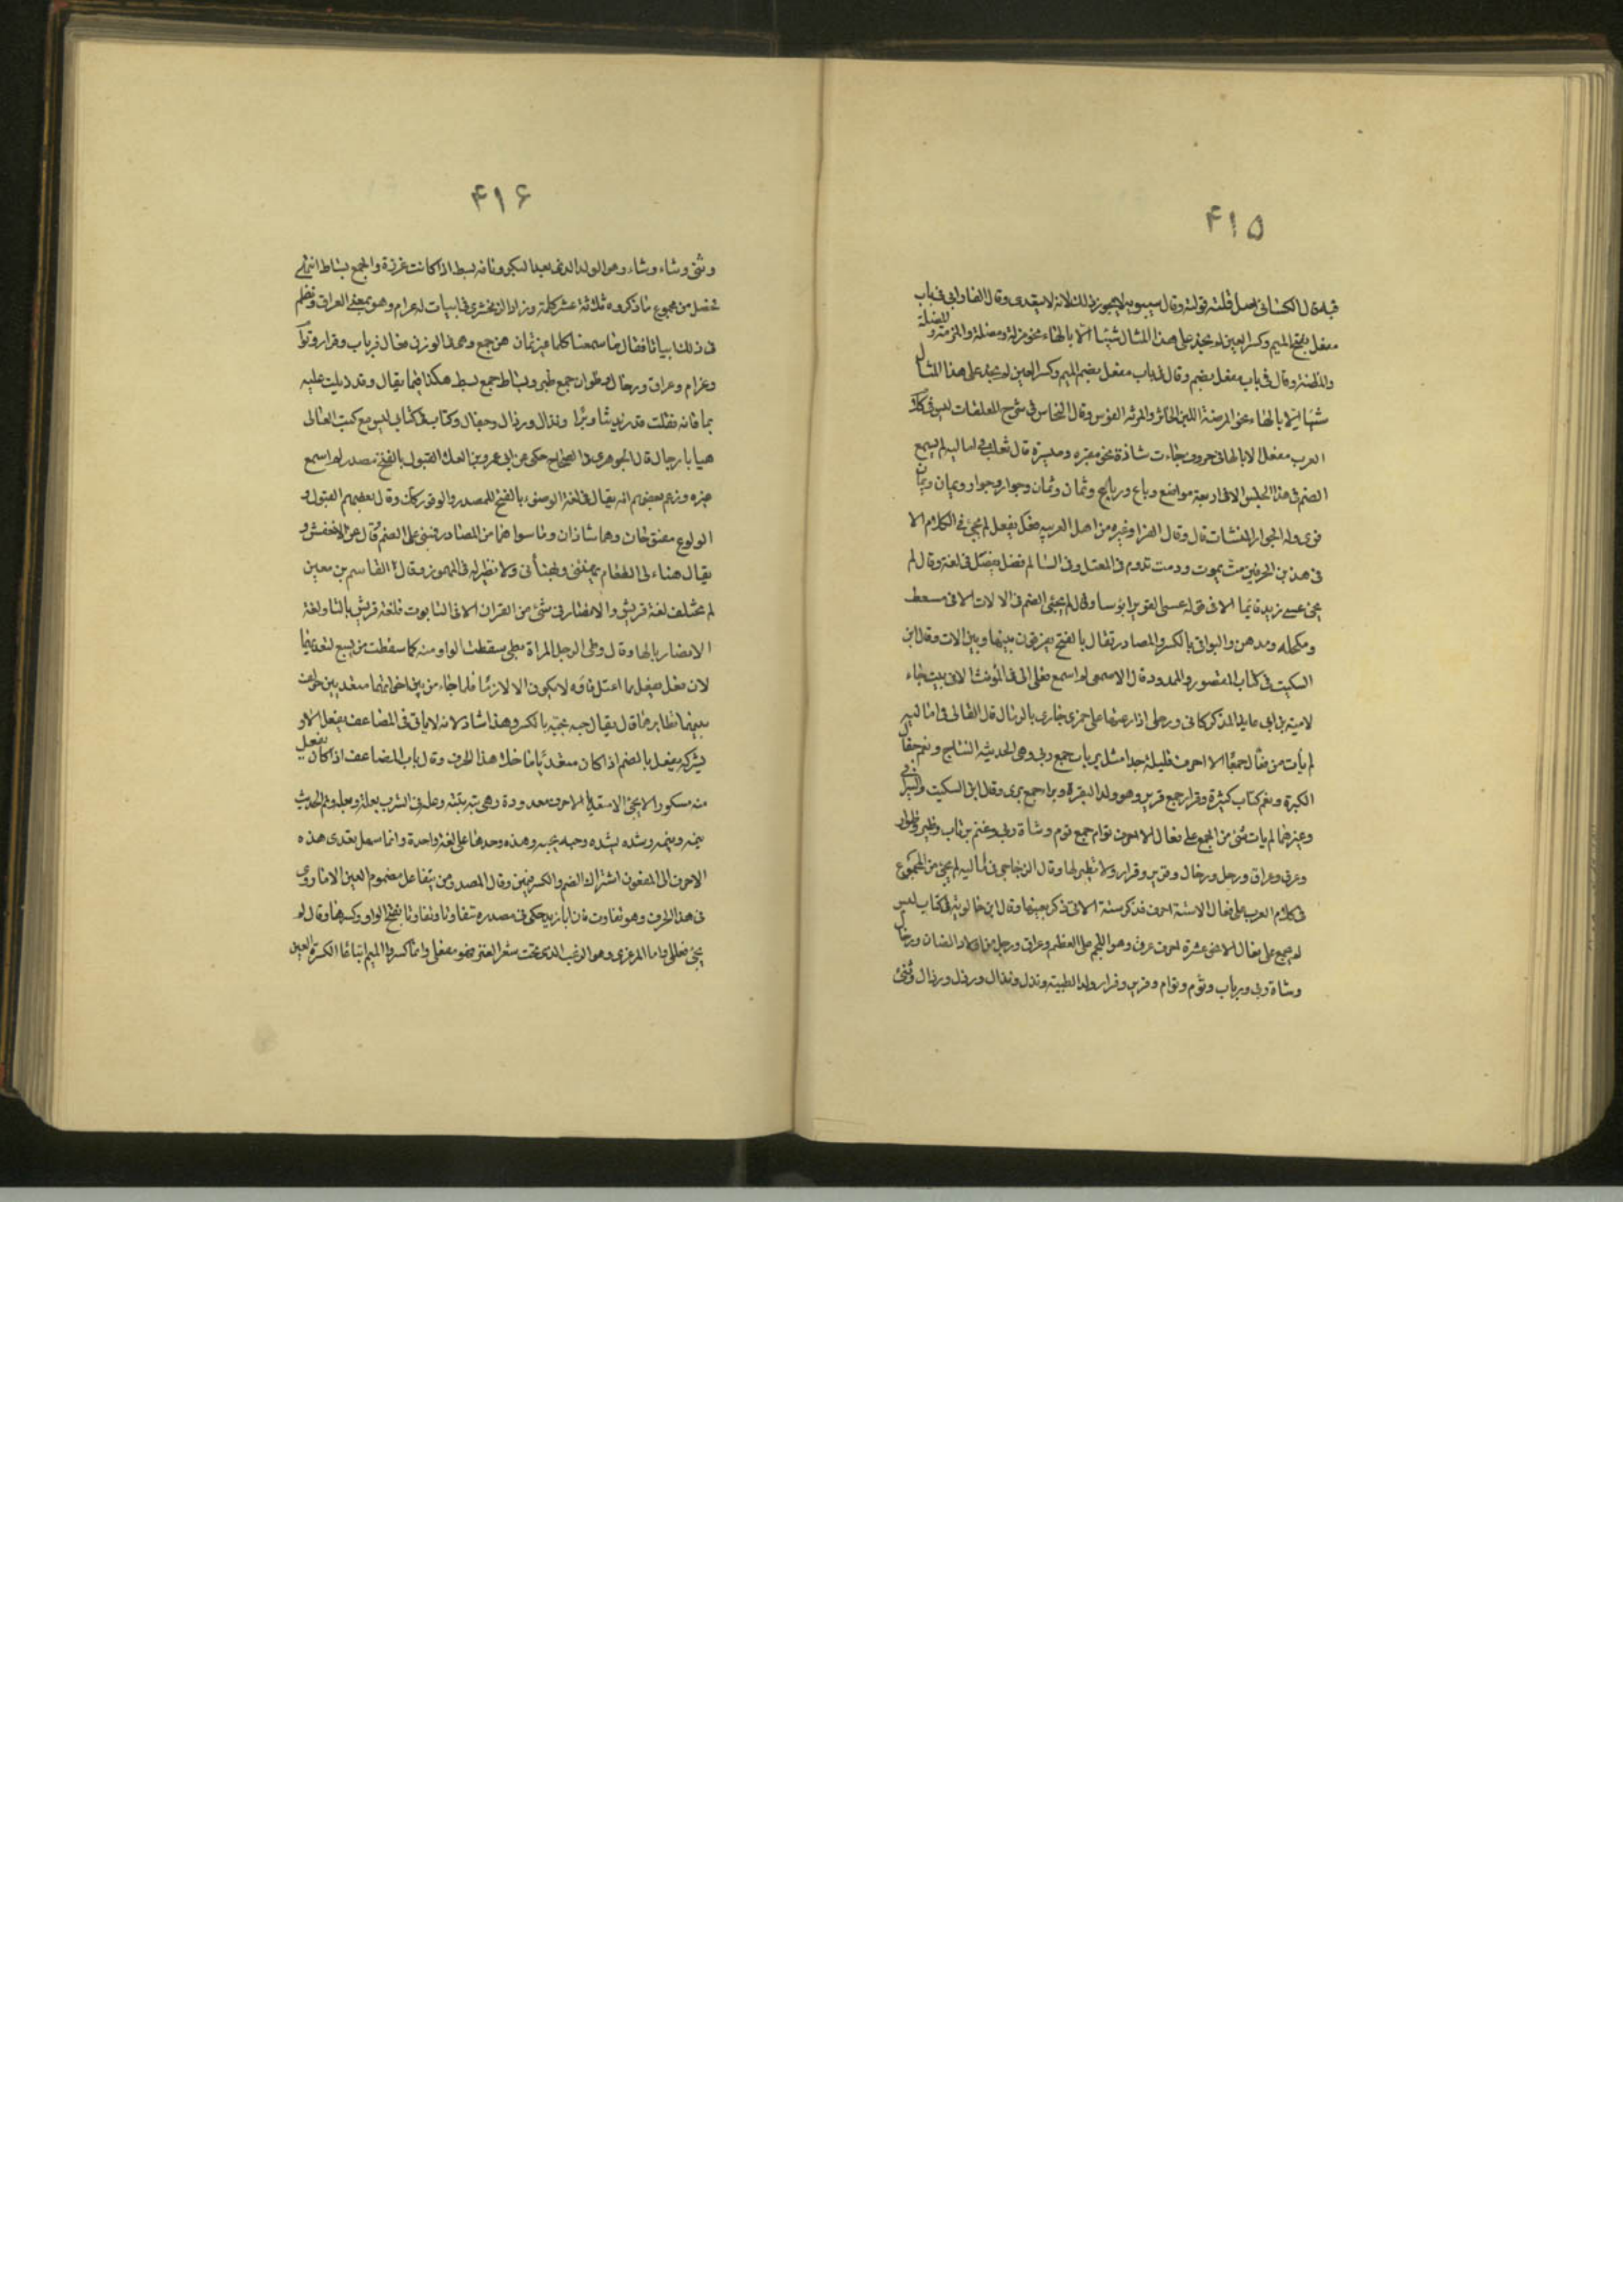 ۴۱۵
قبله قال الكسائى اصل قلته قولته وقال سيبويه لا يجوز ذلك لانه لا يتعدى وقال الفارابى فى باب
مفعل بفتح الميم وكسر العين لم يجئ على هذا المثال شيئا الا بالهاء نحو مزلة ومضلة والمزمة و
وقال فى باب مفعل بضم وقال فى باب مفعل بضم الميم وكسر العين لم يجئ على هذا المثال
شيئا الا بالهاء نحو المرضة اللبن الخاثر والمرنة القوس وقال النحاس فى شرح المعلقات ليس فى كلام
العرب مفعل الا بالهاء فى حروف جاءت شاذة نحو مقبره وميسرة قال ثعلب فى اماليه لم يسمع
الضم فى هذا الجليس الا فى اربعة مواضع رباع ورباع وثمان وثمان وجوار وجوار ويمان ويمان
قرئ وله الجوار المنشآت قال وقال الفراء وغيره من اهل العربيه فعل يفعل لم يجئ فى الكلام الا
فى هذين الحرفين مت يموت ودمت تدوم فى المعتل وفى السالم فضل يفضل فى لغة وقال لم
يجئ عسى زيد قائما الا فى قوله عسى الغوير ابؤسا وقال لم يجئ الضم فى الالات الا فى مسعط
ومكحله ومدهن والبواقى بالكسر والمصادر تقال بالفتح يفرقون بينها وبين الالات وقال ابن
السكيت فى كتاب المقصور والممدود قال الاصمعى لم اسمع فعلى الا فى المؤنث الا فى بيت جاء
لامية بن ابى عايذ المذكر كانى ورحلى اذا رعتها على جمزى جازى بالرمال قال القالى فى اماليه
لم يأت من فعال جمعا الا احرف قليلة جدا مثل رباب جمع ربى وهى الحديثه النتاج ونعم جفال
الكبيرة ونعم كتاب كثيرة وفرار جمع فرير وهو ولد البقرة وبراء جمع برى وقال ابن السكيت
وغيرهما لم يات شئ من الجمع على فعال الا احرف توام جمع توم وشاة ربى وغنم رباب وظئر وظؤار
وعرق وعراق ورخل ورخال وفرير وفرار ولا نظير لها وقال الزجاجى فى اماليه لم يجئ من الجموع
فى كلام العرب على فعال الا ستة احرف فذكر ستة الاتى ذكر بعينها وقال ابن خالويه فى كتاب ليس
لم يجمع على فعال الا نحو عشرة احرف عرق وهو اللحم على العظم وعراق ورخل من اولاد الضان ورخال
وشاة ربى ورباب وتوم وتوام وفرير وفرار ولد الظبيه ونذل ونذال ورذل ورذال وثنى
۴۱۶
وثنى وشاء وشاء وهو الولد الذى بعد البكر وناقة بسط اذا كانت غزيزة والجمع بساط انتهى
فحصل من مجموع ما ذكروه ثلاثة عشر كلمة وزاد الزمخشرى فى ابيات له عرام وهو بمعنى العراق ونظم
فى ذلك ابياتا فقال ما سمعنا كلما غير ثمان هن جمع وهى فى الوزن فعال فرباب وفرار وتوام
وعرام وعراق ورخال وظؤار جمع ظئر وبساط جمع بسط هكذا فيما يقال وقد ذيلت عليه
بما فاته فقلت قد زيد ثناء وبراء ونذال ورذال وجفال وكباب فى كتاب ليس مع كتب القالى
هيا يا رجال قال الجوهرى فى الصحاح حكى عن ابى عمرو بن العلا القبول بالفتح مصدر لم اسمع
غيره وزعم بعضهم انه يقال فى لغة الوضوء بالفتح للمصدر والوقود كذلك وقال بعضهم القبول و
الولوع مفتوحان وهما شاذان وما سواهما من المصادر فمبنى على الضم قال عن الاخفش و
يقال هناء لى الطعام يهنئنى ويهنأنى ولا نظير له فى المهموز وقال القاسم بن معين
لم تختلف لغة قريش والانصار فى شئ من القران الا فى التابوت فلغة قريش بالتاء ولغة
الانصار بالهاء وقال وطى الرجل المراة يطى سقطت الواو منه كما سقطت من يسع لتعديهما
لان فعل يفعل مما اعتل فاؤه لا يكون الا لازما فلما جاء من بين اخواتهما متعديين خولف
بينهما نظايرهما قال يقال حبه يحبه بالكسر وهذا شاذ لانه لا ياتى فى المضاعف يفعل الا و
يشركه يفعل بالضم اذا كان متعديا ما خلا هذا الحرف وقال باب المضاعف اذا كان يفعل
منه مكسور الا يجئ الا متعديا الا احرف معدودة وهى بته يبتته وعله فى الشرب يعله ويعله ونم الحديث
ينمه وينمه وشده يشده وحبه يحبه وهذه وحدها على لغة واحدة وانما سهل تعدى هذه
الاحرف الى المفعول اشتراك الضم والكسر فيهن وقال المصدر من يتفاعل مضموم العين الا ما روى
فى هذا الحرف وهو تفاوت فان ابا زيد حكى فى مصدره تفاوتا وتفاوتا بفتح الواو وكسرها وقال لم
يجئ فعللى واما المرعزى وهو الزغب الذى تحت شعر العنز فهو مفعلى وانما كسروا الميم اتباعا لكسرة العين